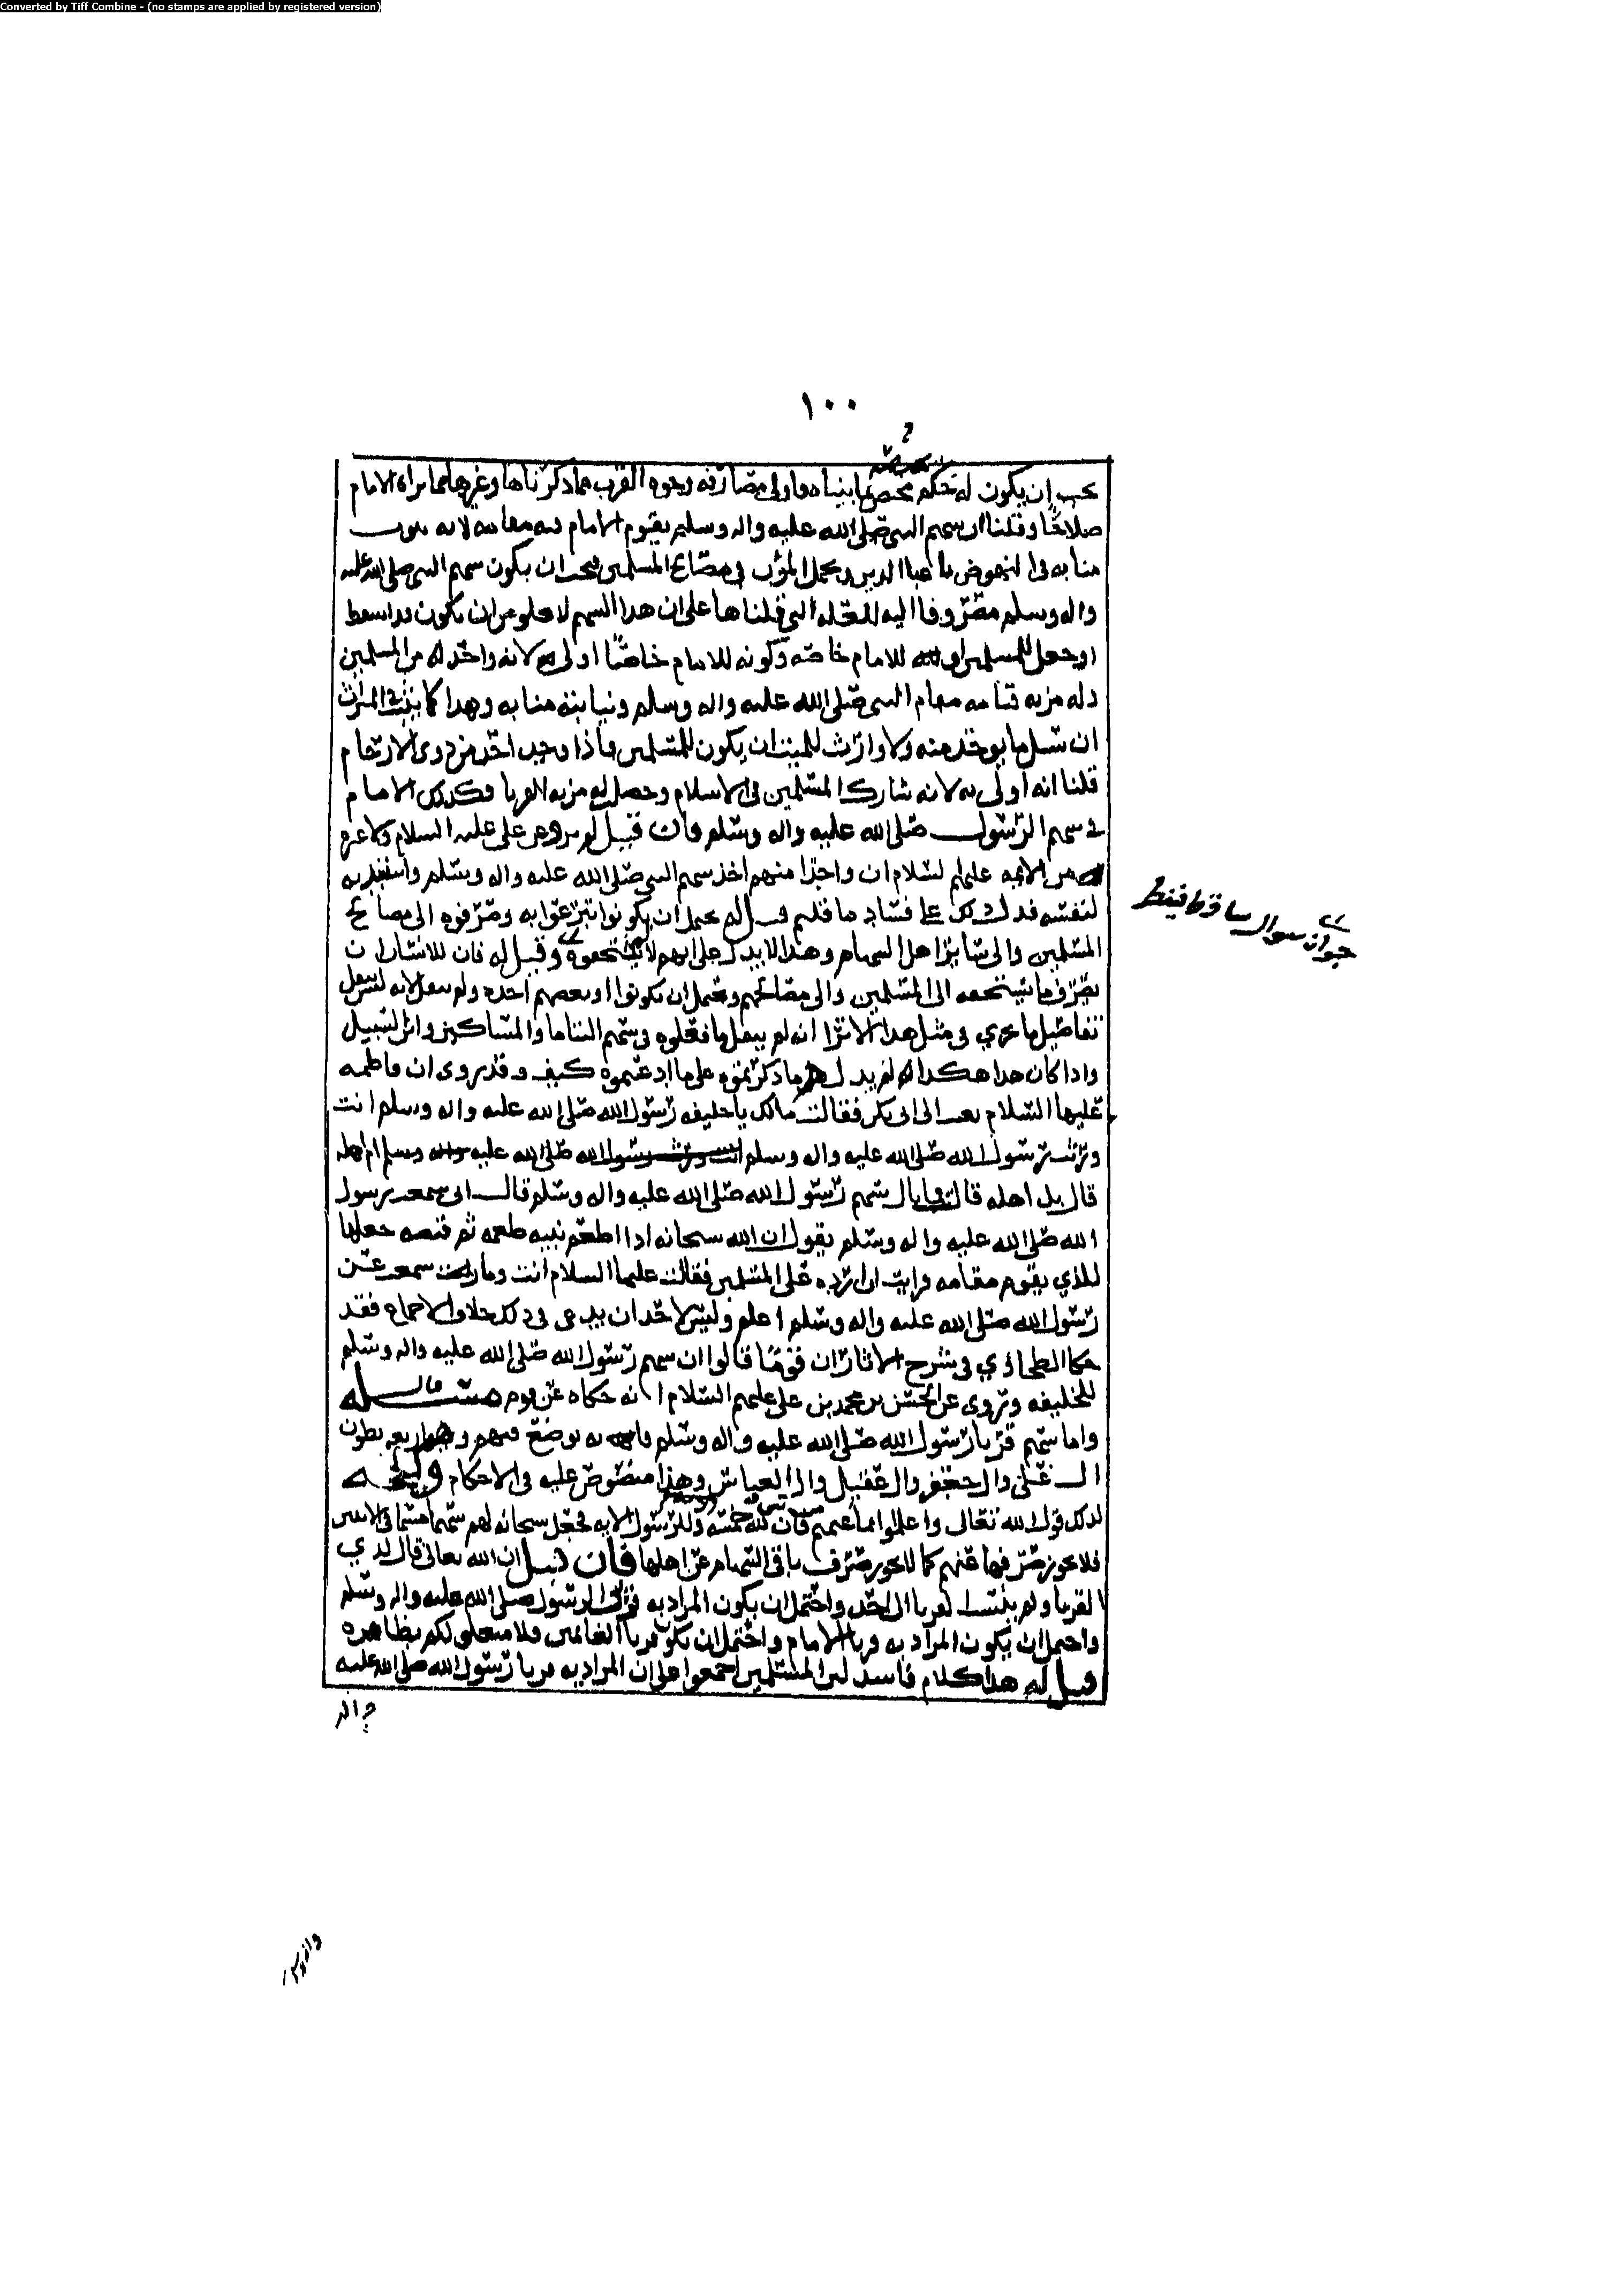 Converted by Tiff Combine - (no stamps are applied by registered version)
١٠٠
يجب ان يكون له حكم مصارفه وجوه القرب مما ذكرناها وغيرها مما يراه الامام
صلاحًا وقلنا ان سهم النبي صلى الله عليه واله وسلم يقوم الامام فيه مقامه لانه ينوب
منابه في النهوض باعباا الدين وتحمل المؤن في مصالح المسلمين فيجب ان يكون سهم النبي صلى الله عليه
واله وسلم مصروفا اليه للعله التي قلناها على ان هذا السهم لا يخلو من ان يكون قد اسقط
او جعل للمسلمين او للامام خاصه وكونه للامام خاصًا اولى لانه واحد من المسلمين
وله مزيه قيامه مقام النبي صلى الله عليه واله وسلم ونيابته منابه وهذا كما يثبت في الميراث
ان سبيل ما يوخذ منه ولا وارث للميت ان يكون للمسلمين فاذا وجب احد من ذوي الارحام
قلنا انه اولى به لانه شارك المسلمين في الاسلام وحصل له مزيه القربا وكذلك الامام
في سهم الرسول صلى الله عليه واله وسلم فان قيل لم يرو عن علي عليه السلام ولا غيره
من الايمه عليهم السلام ان واحدًا منهم اخذ سهم النبي صلى الله عليه واله وسلم واستبد به
لنفسه فدل ذلك على فساد ما قلتم قيل له يحتمل ان يكونوا تبرعوا به وصرفوه الى مصالح
المسلمين والى سائر اهل السهام وهذا لا يدل على انهم لا يستحقوه وقيل له فان للانسان ان
يصرف ما يستحقه الى المسلمين والى مصالحهم ويحتمل ان يكونوا او بعضهم اخذه ولم ينقل لانه ليس ينقل
تفاصيل ما يجري في مثل هذا الا ترا انه لم ينقل ما فعلوه في سهم اليتاما والمساكين وابن السبيل
واذا كان هذا هكذا لم يدل ما ذكرتموه على ما ادعيتموه كيف وقد روى ان فاطمه
عليها السلام بعثت الى ابي بكر فقالت مالك يا خليفه رسول الله صلى الله عليه واله وسلم انت
ورثت رسول الله صلى الله عليه واله وسلم انت ورثت رسول الله صلى الله عليه واله وسلم ام اهله
قال بل اهله قالت فما بال سهم رسول الله صلى الله عليه واله وسلم قال اني سمعت رسول
الله صلى الله عليه واله وسلم يقول ان الله سبحانه اذا اطعم نبيه طعمه ثم قبضه جعلها
للذي يقوم مقامه فرايت ان ارده على المسلمين فقالت عليها السلام انت وما سمعت عن
رسول الله صلى الله عليه واله وسلم اعلم وليس لاحد ان يدعي في ذلك خلاف الاجماع فقد
حكا الطحاوي في شرح الاثار ان قومًا قالوا ان سهم رسول الله صلى الله عليه واله وسلم
للخليفه وتروى عن الحسن بن محمد بن علي عليهم السلام انه حكاه عن قوم مسئله قال
واما سهم قربا رسول الله صلى الله عليه واله وسلم فانه يوضع فيهم وهم اربعه بطون
ال علي وال جعفر وال عقيل وال العباس وهذا منصوص عليه في الاحكام ووجه
لذلك قول الله تعالى واعلموا انما غنمتم من شيء فان لله خمسه وللرسول الايه فجعل سبحانه لهم سهما
فلا يجوز صرفها عنهم كما لا يجوز صرف باقي السهام عن اهلها فان قيل ان الله تعالى قال لذي
القربا ولم ينسب القربا الى احد واحتمل ان يكون المراد به قربى الرسول صلى الله عليه واله وسلم
واحتمل ان يكون المراد به قربا الامام واحتمل ان يكون قربا الغانمين فلا متعلق لكم بظاهره
قيل له هذا كلام فاسد لان المسلمين اجمعوا على ان المراد به قربا رسول الله صلى الله عليه
واله
جواب سوال ساقط فينظر